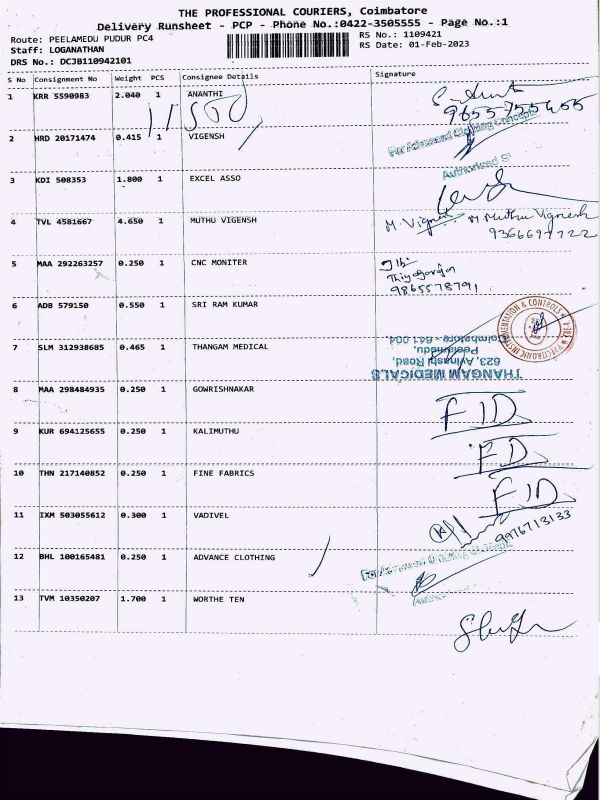 THE PROFESSIONAL COURIERS, Coimbatore
Delivery Runsheet - PCP - Phone No.:0422-3505555 - Page No.:1
Route: PEELAMEDU PUDUR PC4 RS No.: 1109421
Staff: LOGANATHAN RS Date: 01-Feb-2023
DRS No.: DCJB110942101
S No Consignment No Weight PCS Consignee Details Signature
1 KRR 5590983 2.040 1 ANANTHI
11500
9655755455
2 HRD 20171474 0.415 1 VIGENSH
For Advanced Clothing Concepts
Authorised
3 KDI 508353 1.800 1 EXCEL ASSO
4 TVL 4581667 4.650 1 MUTHU VIGENSH M. Vignesh M. Muthu Vignesh
9366697722
5 MAA 292263257 0.250 1 CNC MONITER
Thiyagarajan
9865578791
6 ADB 579150 0.550 1 SRI RAM KUMAR
7 SLM 312938685 0.465 1 THANGAM MEDICAL
THANGAM MEDICALS
623, Avinashi Road,
Peelamedu,
Coimbatore - 641 004
8 MAA 298484935 0.250 1 GOWRISHNAKAR FID
9 KUR 694125655 0.250 1 KALIMUTHU FD
10 THN 217140852 0.250 1 FINE FABRICS FID
11 IXM 503055612 0.300 1 VADIVEL 9976713133
12 BHL 100165481 0.250 1 ADVANCE CLOTHING
13 TVM 10350207 1.700 1 WORTHE TEN